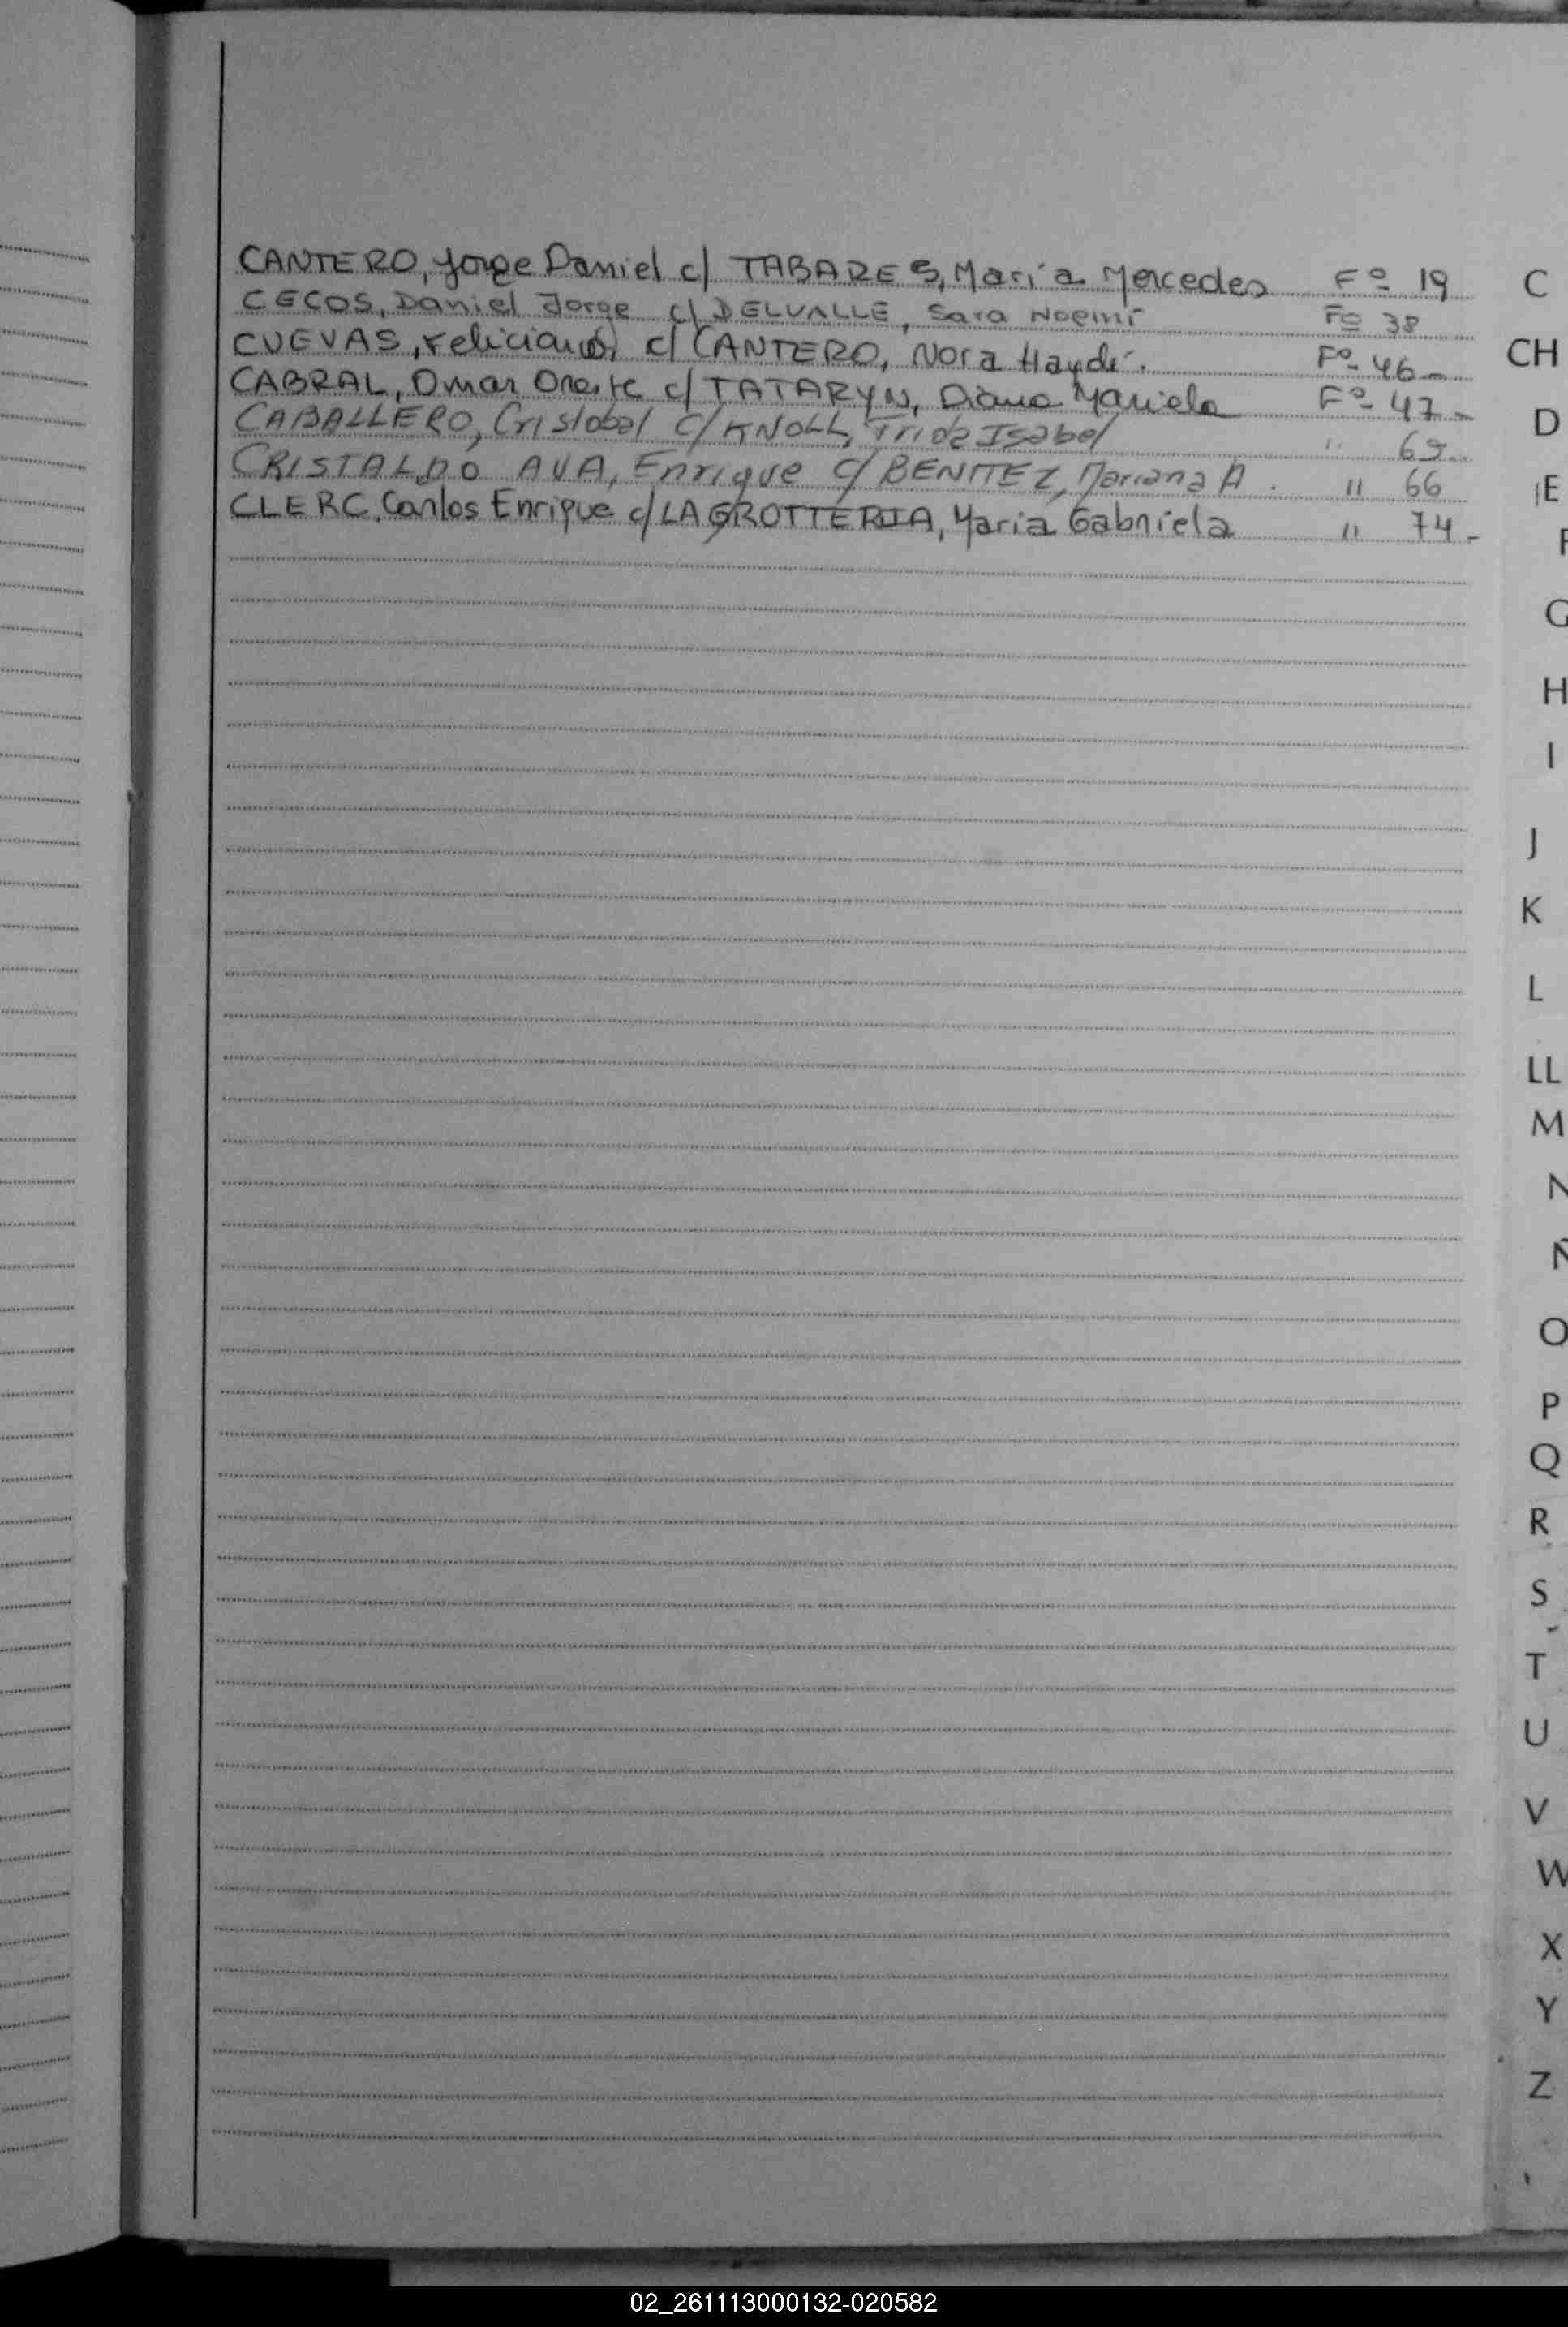 CANTERO, Jorge Daniel c/ TABARES, María Mercedes Fº 19
CECOS, Daniel Jorge c/ DELVALLE, Sara Noemí Fº 38
CUEVAS, Feliciano c/ CANTERO, Nora Haydé. Fº 46-
CABRAL, Omar Oreste c/ TATARYN, Diana Mariela Fº 47-
CABALLERO, Cristobal c/ KNOLL, Isabel "
CRISTALDO AVA, Enrique c/ BENITEZ, Mariana A. " 66
CLERC, Carlos Enrique c/ LAGROTTERIA, María Gabriela " 74-
C
CH
D
E
F
G
H
I
J
K
L
LL
M
N
Ñ
O
P
Q
R
S
T
U
V
W
X
Y
Z
02_261113000132-020582